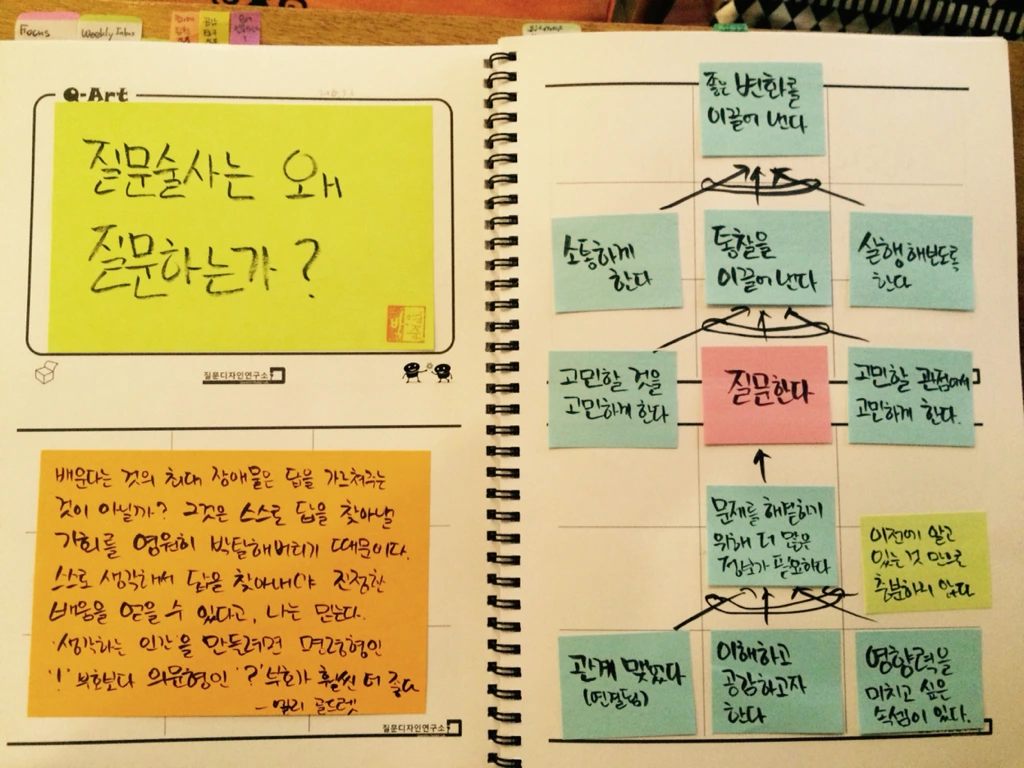 Focus
Weekly Jobs
Q-Art
질문술사는 왜
질문하는가?
질문디자인연구소
배운다는 것의 최대 장애물은 답을 가르쳐주는
것이 아닐까? 그것은 스스로 답을 찾아낼
기회를 영원히 박탈해버리기 때문이다.
스스로 생각해서 답을 찾아내야 진정한
배움을 얻을 수 있다고, 나는 믿는다.
생각하는 인간을 만들려면 명령형인
'!' 부호보다 의문형인 '?' 부호가 훨씬 더 좋다
- 엘리 골드렛
질문디자인연구소
좋은 변화를
이끌어 낸다
소통하게
한다
통찰을
이끌어 낸다
실행해보도록
한다
고민할 것을
고민하게 한다
질문한다
고민할 관점에서
고민하게 한다.
문제를 해결하기
위해 더 많은
정보가 필요하다
이전에 알고
있는 것 만으로
충분하지 않다
관계 맺었다
(연결됨)
이해하고
공감하고자
한다
영향력을
미치고 싶은
속셈이 있다.